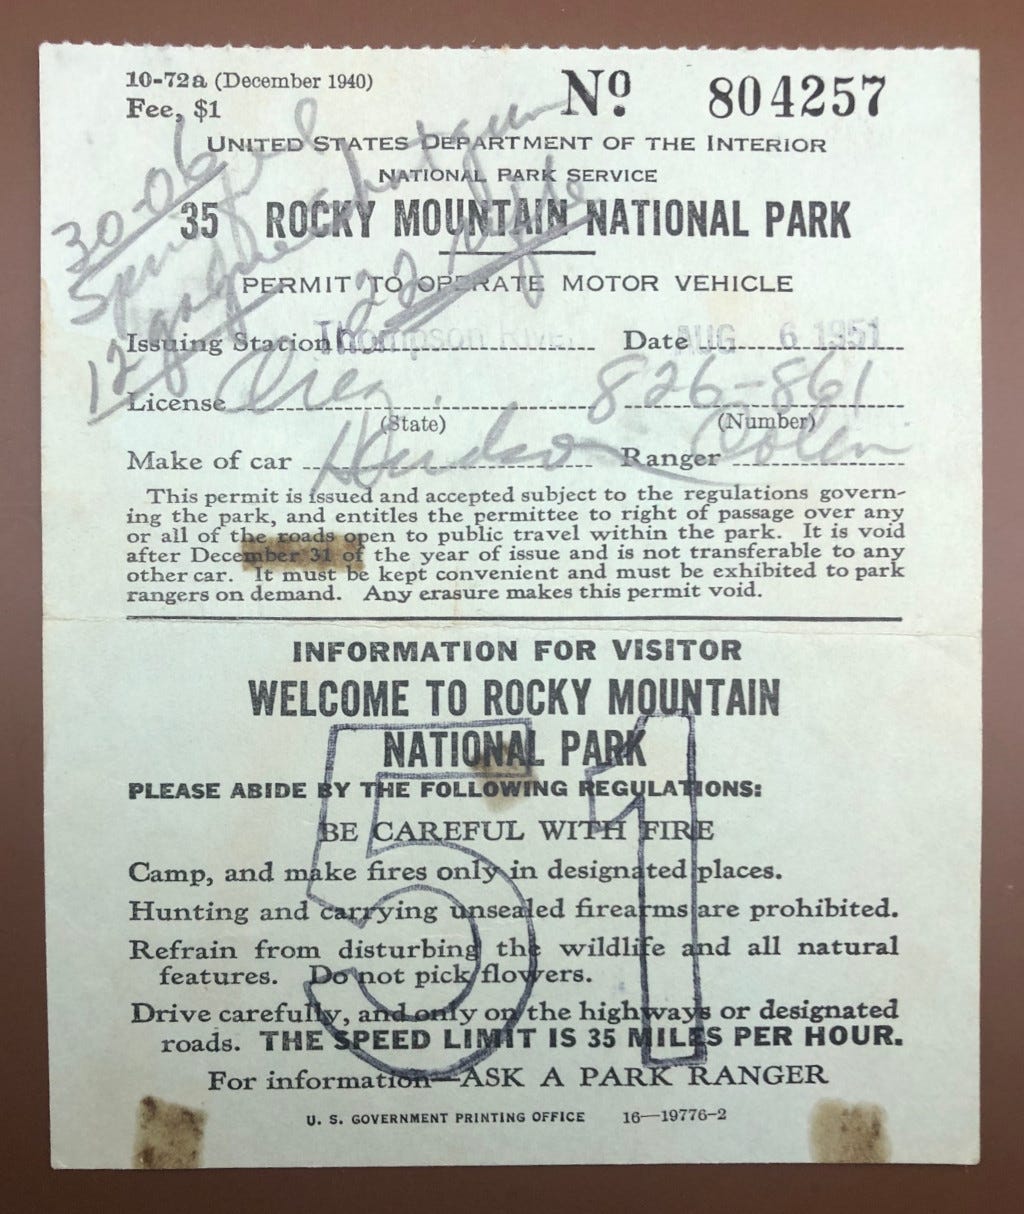 10-72a (December 1940)
Fee, $1
Nº 804257
UNITED STATES DEPARTMENT OF THE INTERIOR
NATIONAL PARK SERVICE
35 ROCKY MOUNTAIN NATIONAL PARK
PERMIT TO OPERATE MOTOR VEHICLE
30-06
12 gauge shotgun
22
Issuing Station Thompson River Date AUG 6 1951
License Oreg. 826-861
(State) (Number)
Make of car Hudson Ranger
This permit is issued and accepted subject to the regulations govern-
ing the park, and entitles the permittee to right of passage over any
or all of the roads open to public travel within the park. It is void
after December 31 of the year of issue and is not transferable to any
other car. It must be kept convenient and must be exhibited to park
rangers on demand. Any erasure makes this permit void.
INFORMATION FOR VISITOR
WELCOME TO ROCKY MOUNTAIN
NATIONAL PARK
PLEASE ABIDE BY THE FOLLOWING REGULATIONS:
BE CAREFUL WITH FIRE
Camp, and make fires only in designated places.
Hunting and carrying unsealed firearms are prohibited.
Refrain from disturbing the wildlife and all natural
features. Do not pick flowers.
Drive carefully, and only on the highways or designated
roads. THE SPEED LIMIT IS 35 MILES PER HOUR.
For information—ASK A PARK RANGER
51
U. S. GOVERNMENT PRINTING OFFICE 16—19776-2